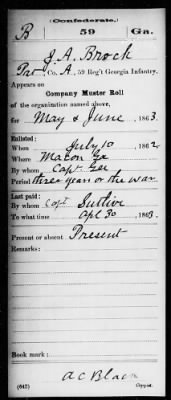 (Confederate.)
B 59 Ga.
J. A. Brock
Pvt, Co. A, 59 Reg't Georgia Infantry.
Appears on
Company Muster Roll
of the organization named above,
for May & June, 1863.
Enlisted:
When July 10, 1862.
Where Macon Ga
By whom Capt. Gee
Period three years or the war
Last paid:
By whom Capt.
To what time Apl 30, 1863.
Present or absent Present
Remarks:
Book mark:
A C Black
(642) Copyist.